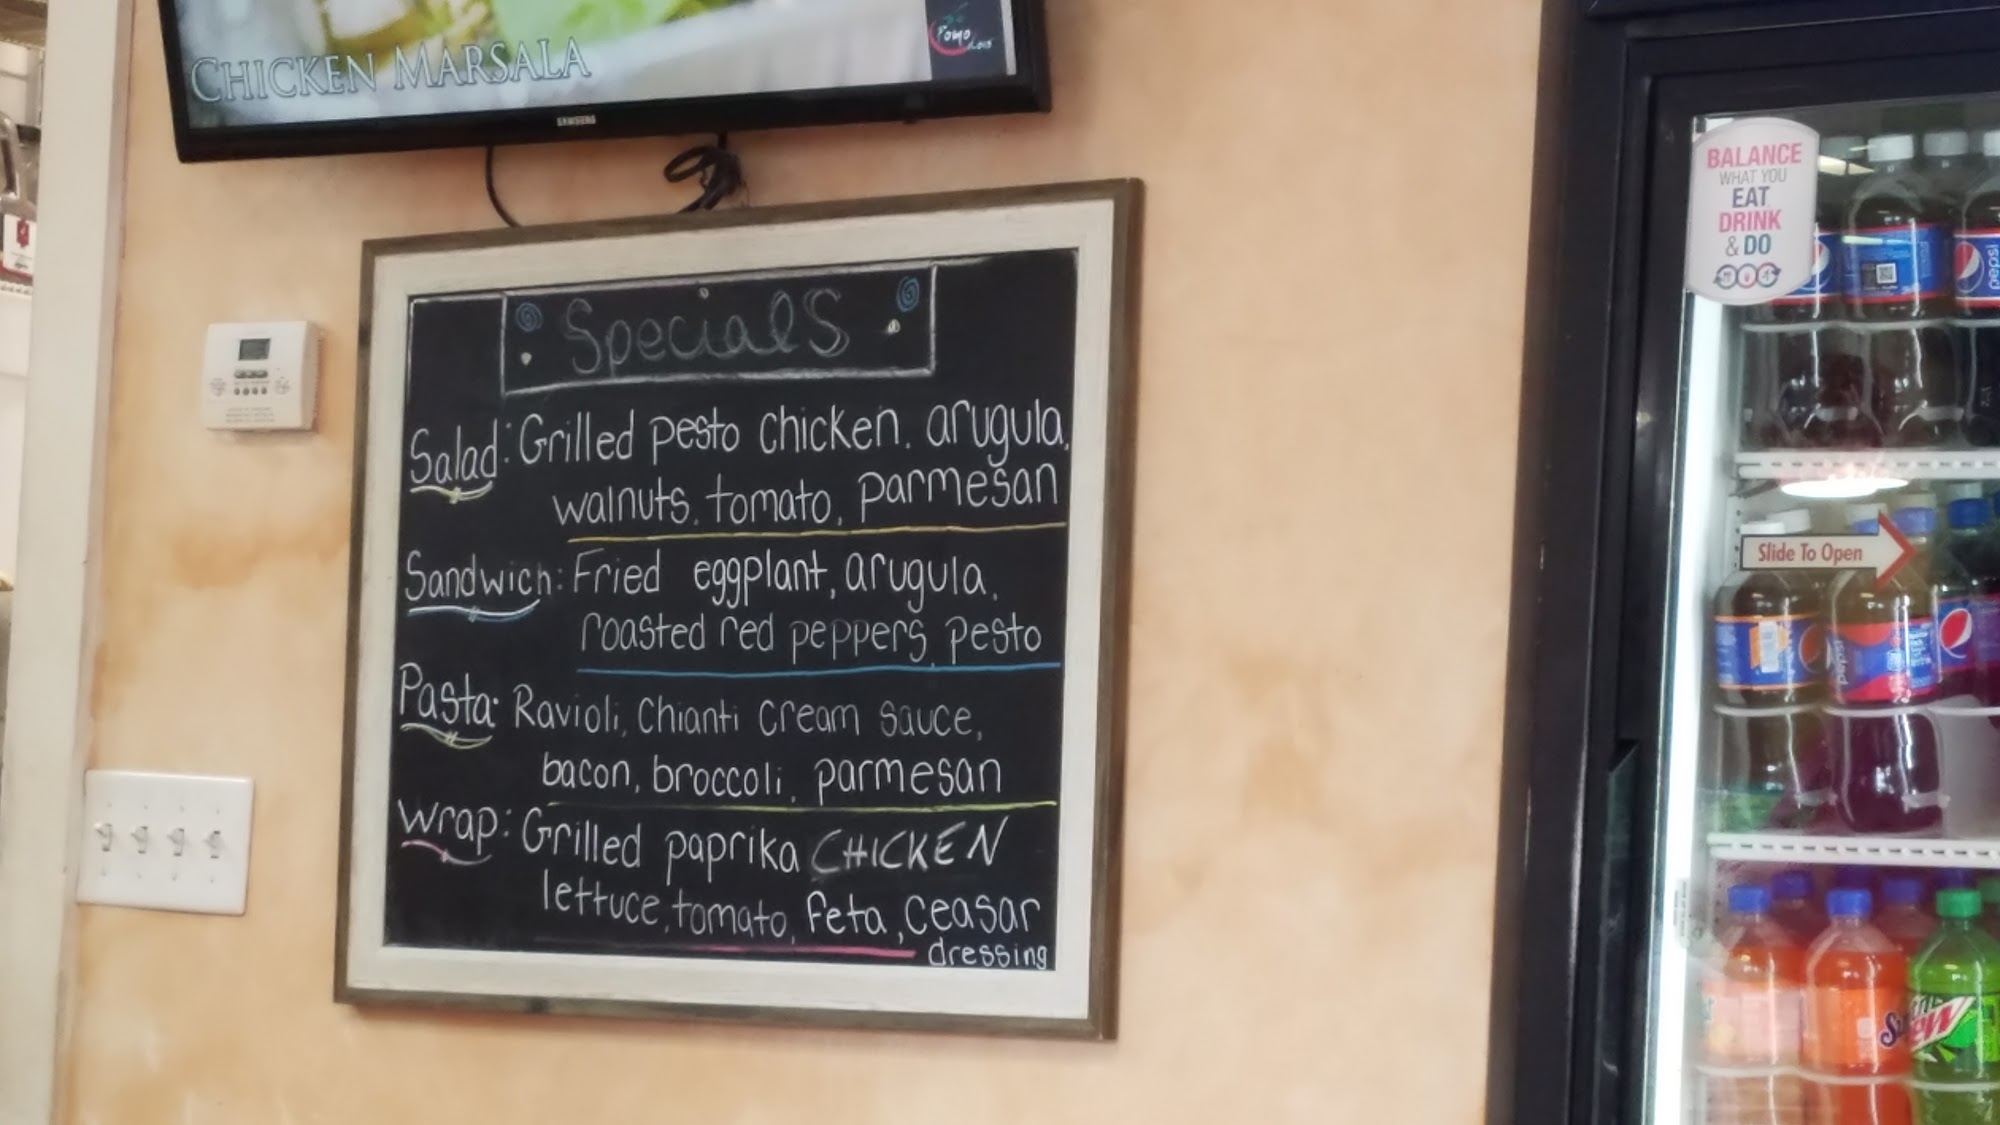 CHICKEN MARSALA
Pomo
Specials
Salad: Grilled pesto chicken, arugula,
walnuts, tomato, parmesan
Sandwich: Fried eggplant, arugula,
roasted red peppers, pesto
Pasta: Ravioli, Chianti cream sauce,
bacon, broccoli, parmesan
Wrap: Grilled paprika CHICKEN
lettuce, tomato, feta, ceasar
dressing
BALANCE
WHAT YOU
EAT
DRINK
& DO
pepsi
Slide To Open